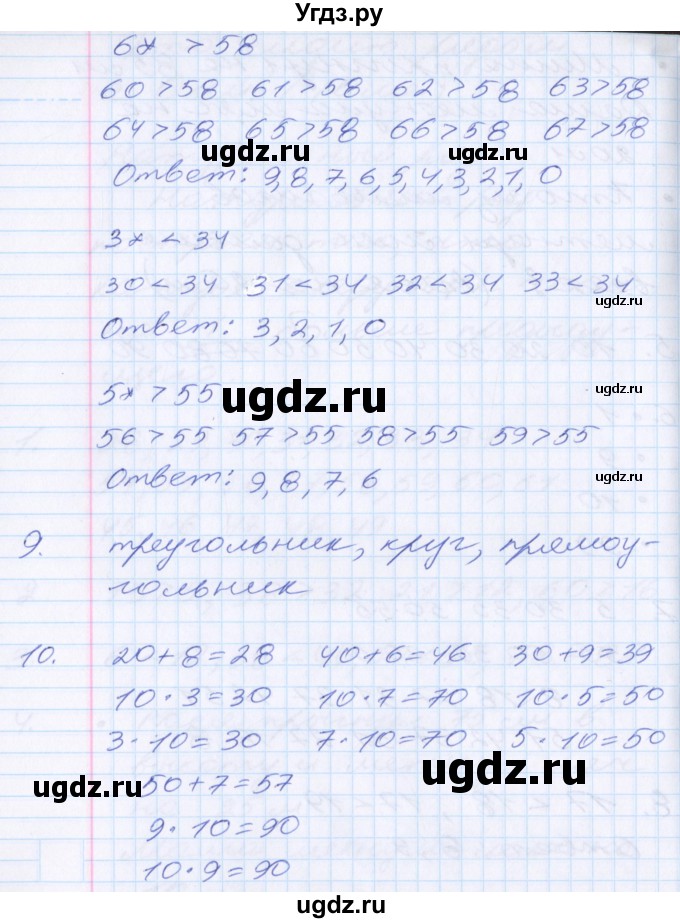 Угдз.ру
6* > 58
60 > 58 61 > 58 62 > 58 63 > 58
64 > 58 65 > 58 66 > 58 67 > 58
ugdz.ru ugdz.ru
Ответ: 9, 8, 7, 6, 5, 4, 3, 2, 1, 0
3* < 34
30 < 34 31 < 34 32 < 34 33 < 34
ugdz.ru
Ответ: 3, 2, 1, 0
5* > 55
ugdz.ru ugdz.ru
56 > 55 57 > 55 58 > 55 59 > 55
Ответ: 9, 8, 7, 6
ugdz.ru
9. треугольник, круг, прямоу-
гольник
10. 20+8=28 40+6=46 30+9=39
10·3=30 10·7=70 10·5=50
3·10=30 7·10=70 5·10=50
ugdz.ru 50+7=57 ugdz.ru
9·10=90
10·9=90
ugdz.ru
ugdz.ru